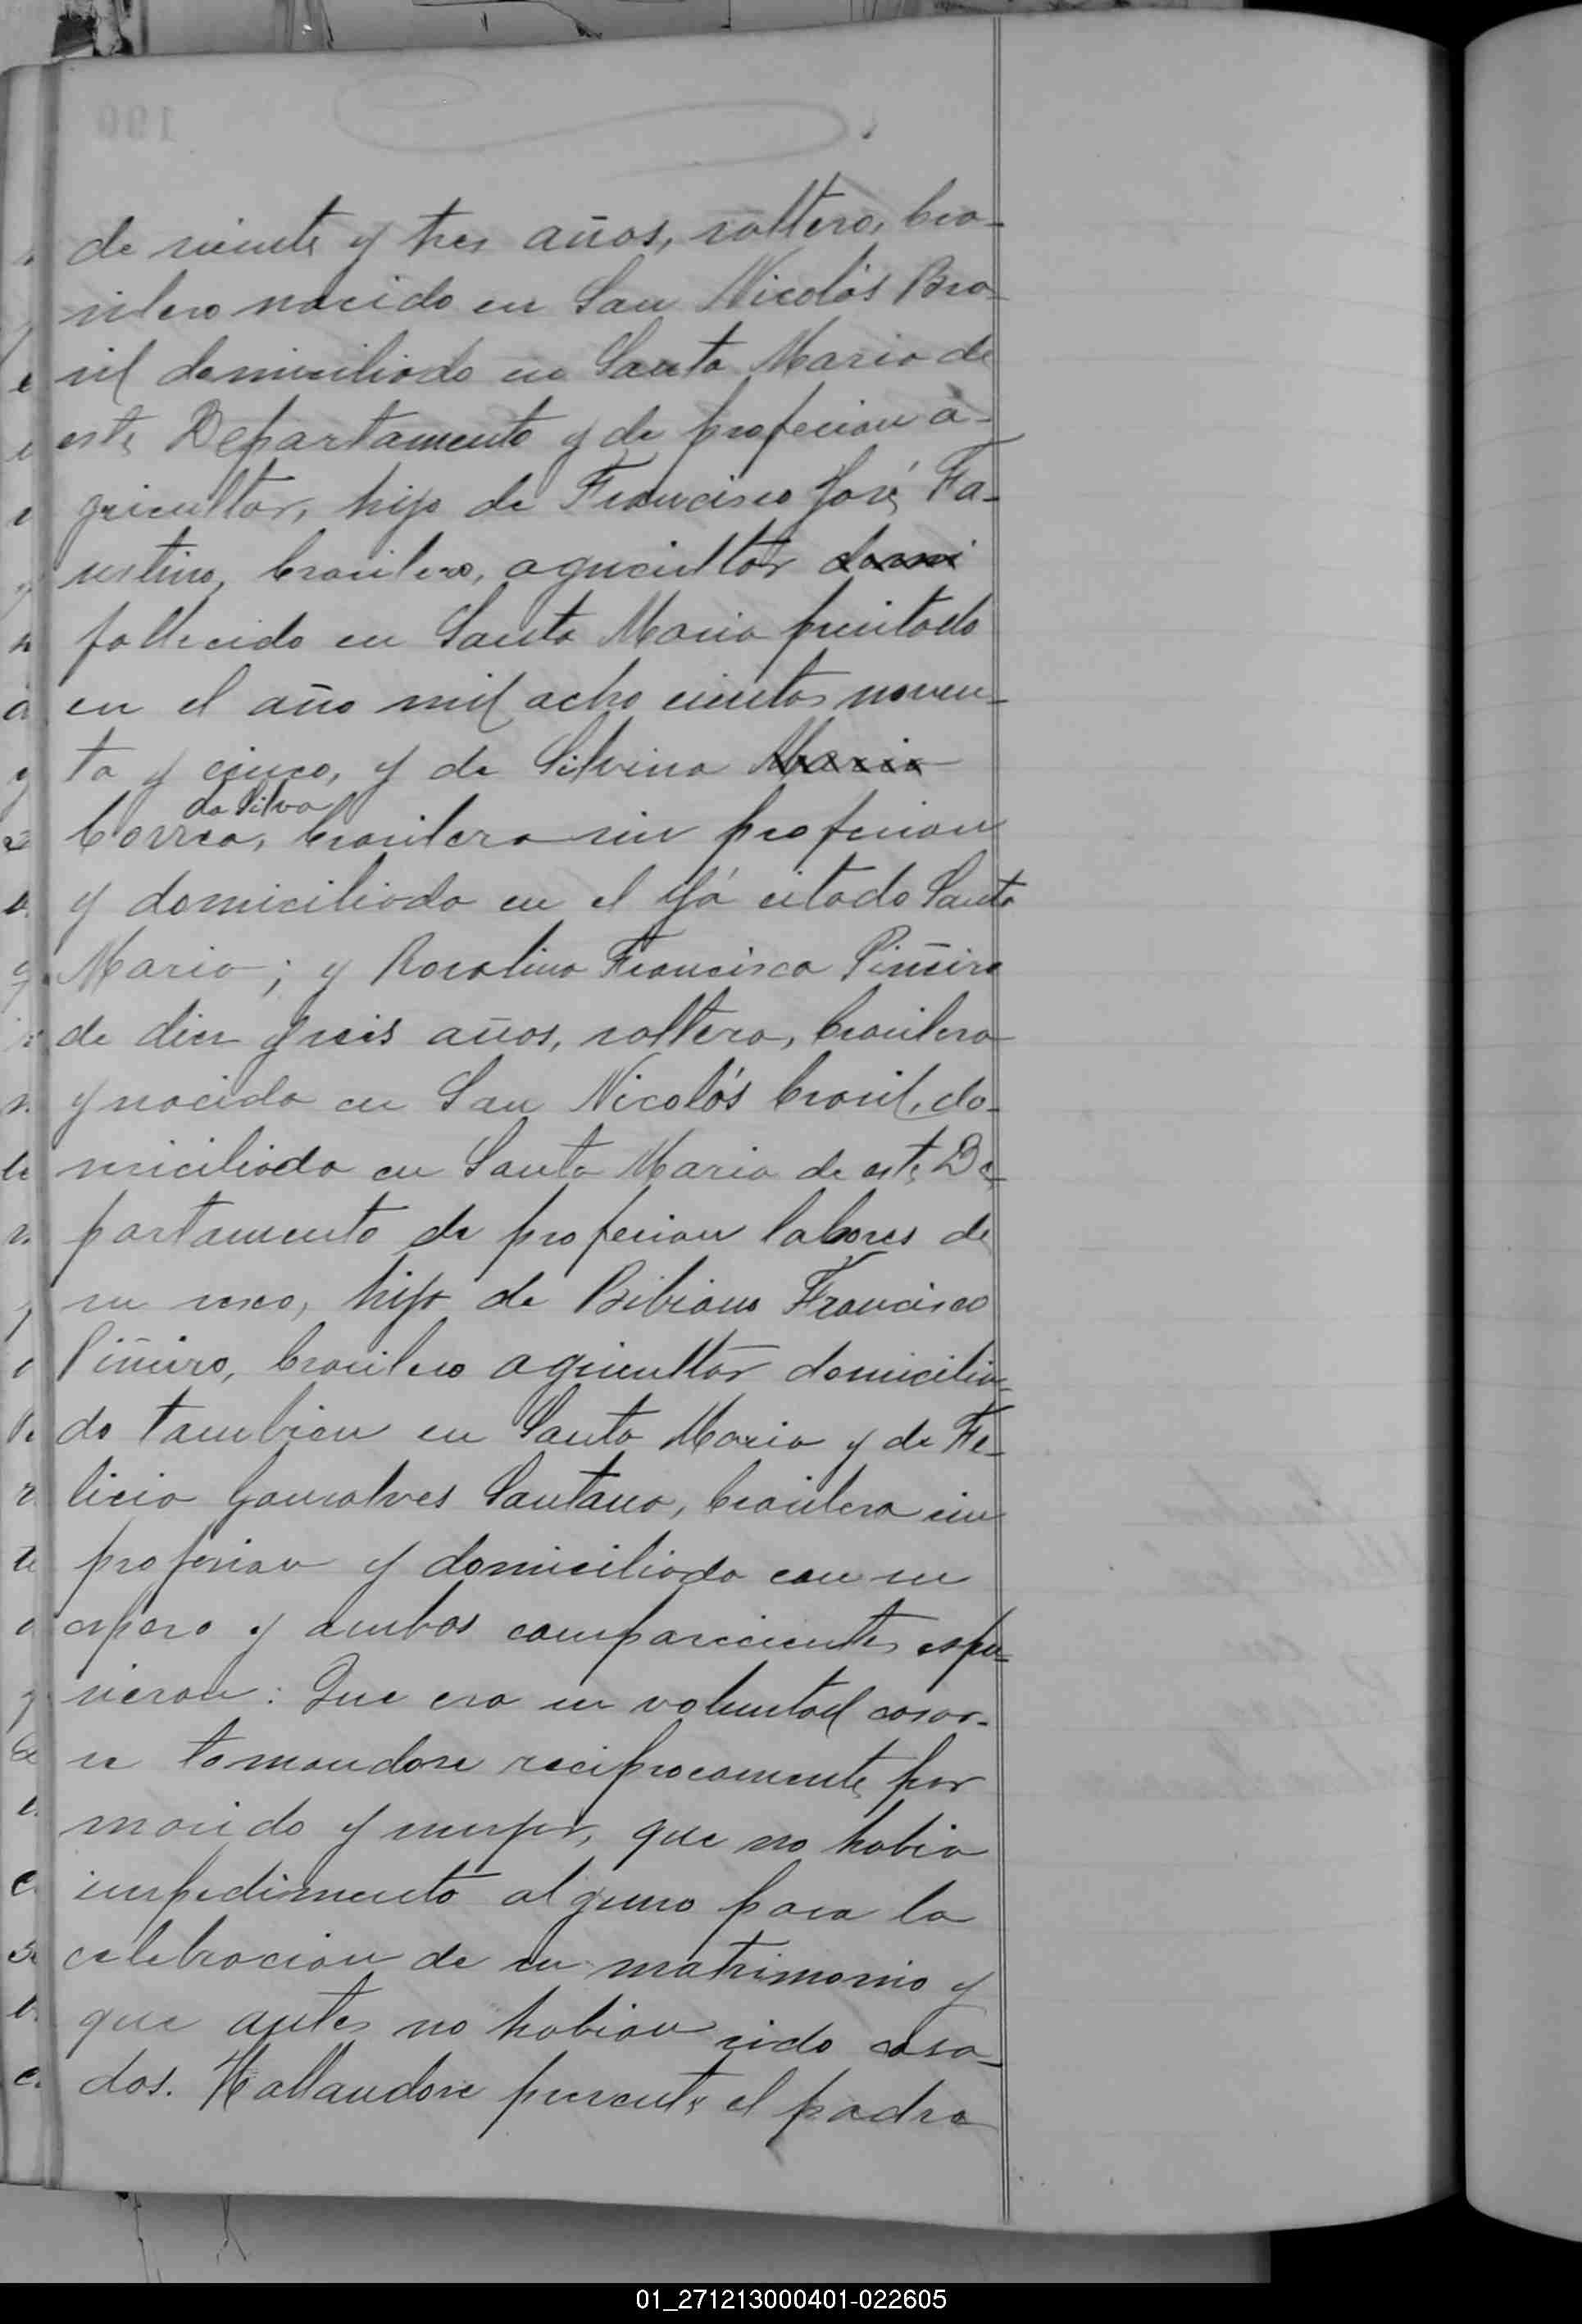 de veinte y tres años, soltero, bra-
silero nacido en San Nicolás Bra-
sil domiciliado en Santa Maria de
este Departamento y de profecion a-
gricultor, hijo de Francisco José Fa-
ustino, brasilero, agricultor domi
fallecido en Santa Maria precitado
en el año mil ocho cientos noven-
ta y cinco, y de Silvina Maria
da Silva
Correa, brasilera sin profecion
y domiciliada en el yá citado Santa
Maria; y Rosalina Francisca Piñeiro
de diez y seis años, soltera, brasilera
y nacida en San Nicolás brasil, do-
miciliada en Santa Maria de este De-
partamento de profecion labores de
su sexo, hija de Bibiano Francisco
Piñeiro, brasilero agricultor domicilia-
do tambien en Santa Maria y de Fe-
licia Gonsalves Santana, brasilera sin
profecion y domiciliada con su
esposo y ambos comparecientes espu-
sieron: Que era su voluntad casar-
se tomandose reciprocamente por
marido y mujer, que no habia
impedimento alguno para la
celebracion de su matrimonio y
que antes no habian sido casa-
dos. Hallandose presente el padre
01_271213000401-022605